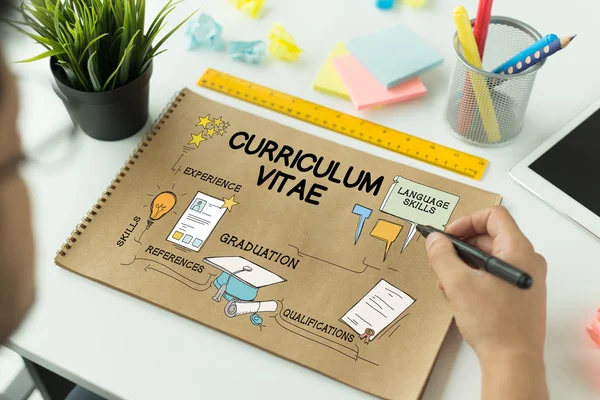 CURRICULUM
VITAE
EXPERIENCE
LANGUAGE
SKILLS
SKILLS
REFERENCES
GRADUATION
QUALIFICATIONS